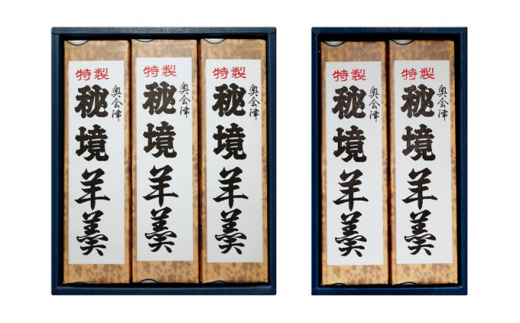 特製
奥会津
秘境羊羹
特製
奥会津
秘境羊羹
特製
奥会津
秘境羊羹
特製
奥会津
秘境羊羹
特製
奥会津
秘境羊羹